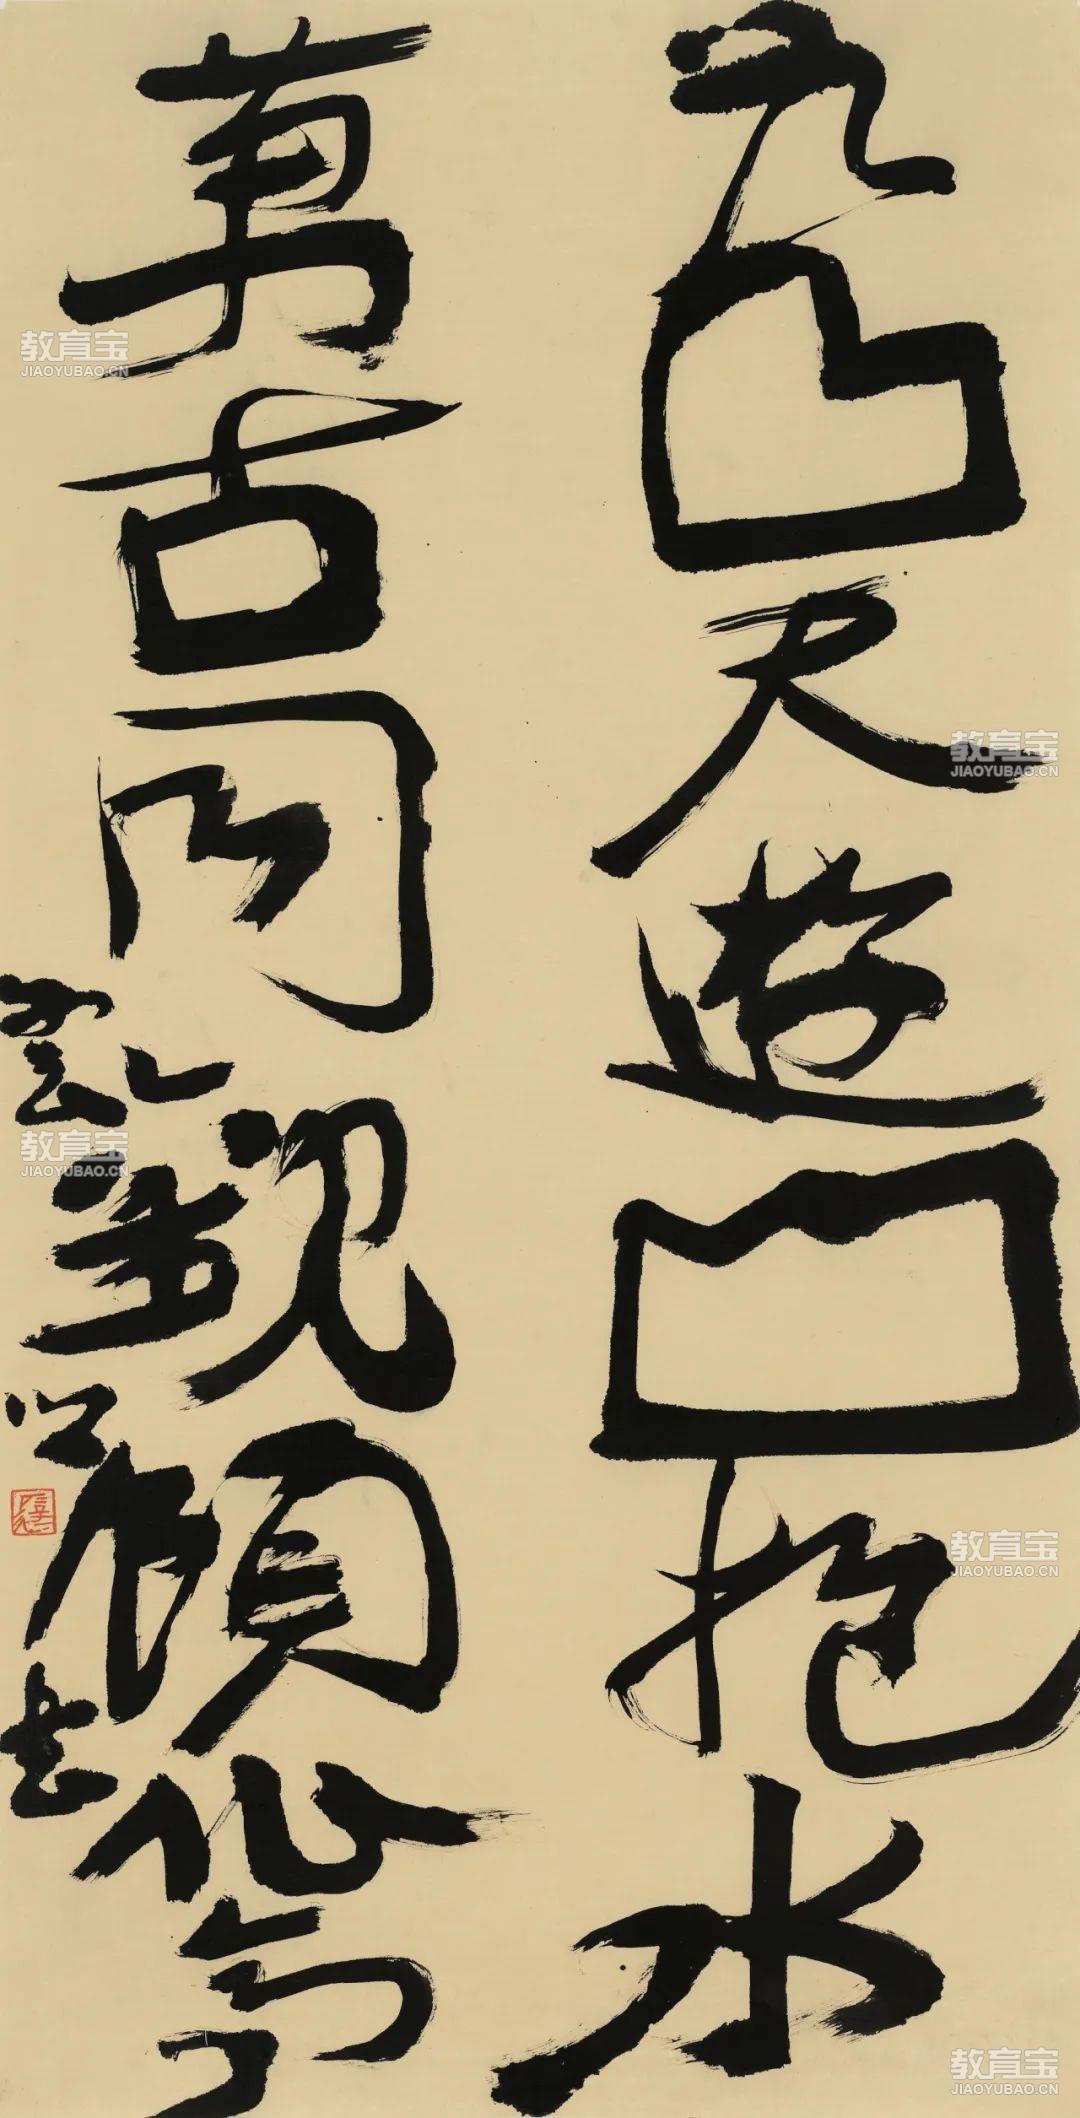 凸天遊凹抱水
萬古同觀顧
書
教育宝
JIAOYUBAO.CN
教育宝
JIAOYUBAO.CN
教育宝
JIAOYUBAO.CN
教育宝
JIAOYUBAO.CN
教育宝
JIAOYUBAO.CN